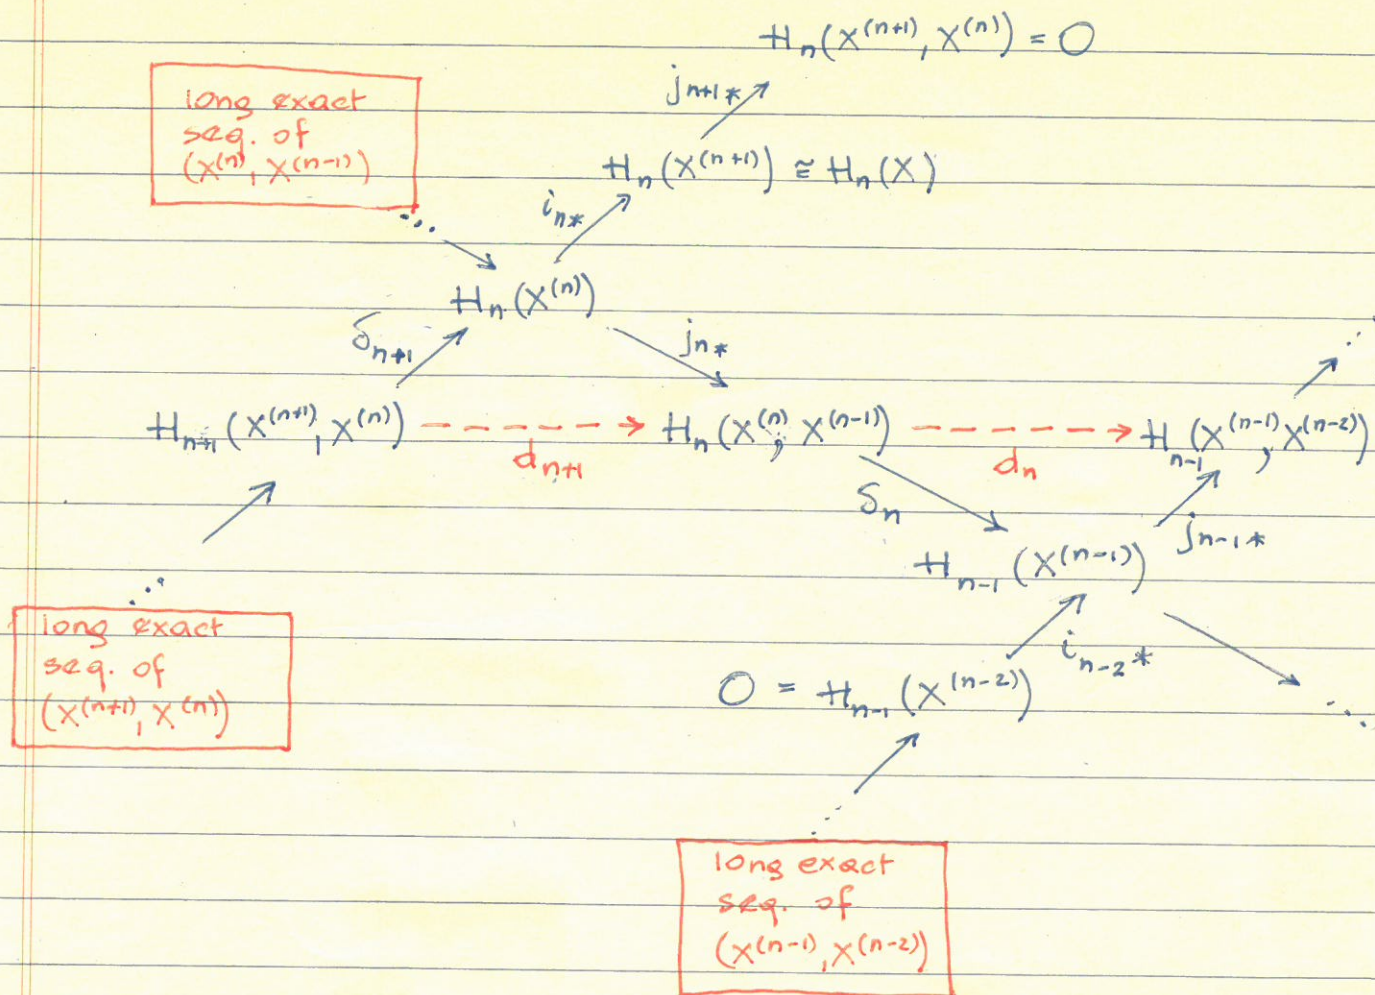 Hₙ(X⁽ⁿ⁺¹⁾, X⁽ⁿ⁾) = 0
jₙ₊₁*
long exact
seq. of
(X⁽ⁿ⁾, X⁽ⁿ⁻¹⁾)
Hₙ(X⁽ⁿ⁺¹⁾) ≅ Hₙ(X)
iₙ*
Hₙ(X⁽ⁿ⁾)
δₙ₊₁
jₙ*
Hₙ₊₁(X⁽ⁿ⁺¹⁾, X⁽ⁿ⁾) Hₙ(X⁽ⁿ⁾, X⁽ⁿ⁻¹⁾) Hₙ₋₁(X⁽ⁿ⁻¹⁾, X⁽ⁿ⁻²⁾)
dₙ₊₁ dₙ
δₙ
jₙ₋₁*
Hₙ₋₁(X⁽ⁿ⁻¹⁾)
long exact
seq. of
(X⁽ⁿ⁺¹⁾, X⁽ⁿ⁾)
iₙ₋₂*
0 = Hₙ₋₁(X⁽ⁿ⁻²⁾)
long exact
seq. of
(X⁽ⁿ⁻¹⁾, X⁽ⁿ⁻²⁾)